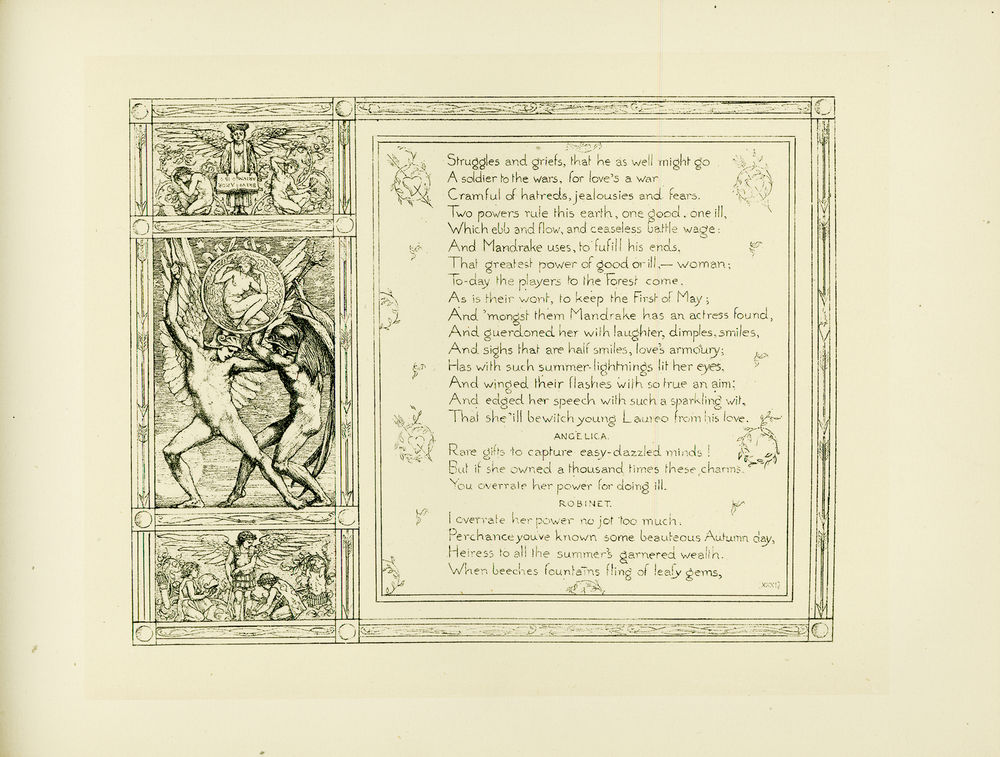 Struggles and griefs, that he as well might go
A soldier to the wars, for love's a war
Cramful of hatreds, jealousies and fears.
Two powers rule this earth, one good, one ill,
Which ebb and flow, and ceaseless battle wage:
And Mandrake uses, to fufill his ends,
That greatest power of good or ill,— woman;
To-day the players to the Forest come,
As is their wont, to keep the First of May;
And 'mongst them Mandrake has an actress found,
And guerdoned her with laughter, dimples, smiles,
And sighs that are half smiles, love's armoury;
Has with such summer-lightnings lit her eyes,
And winged their flashes with so true an aim;
And edged her speech with such a sparkling wit,
That she'ill bewitch young Laureo from his love.
ANGELICA.
Rare gifts to capture easy-dazzled minds!
But if she owned a thousand times these charms.
You overrate her power for doing ill.
ROBINET.
I overrate her power no jot too much.
Perchance you've known some beauteous Autumn day,
Heiress to all the summer's garnered wealth.
When beeches fountains fling of leafy gems,